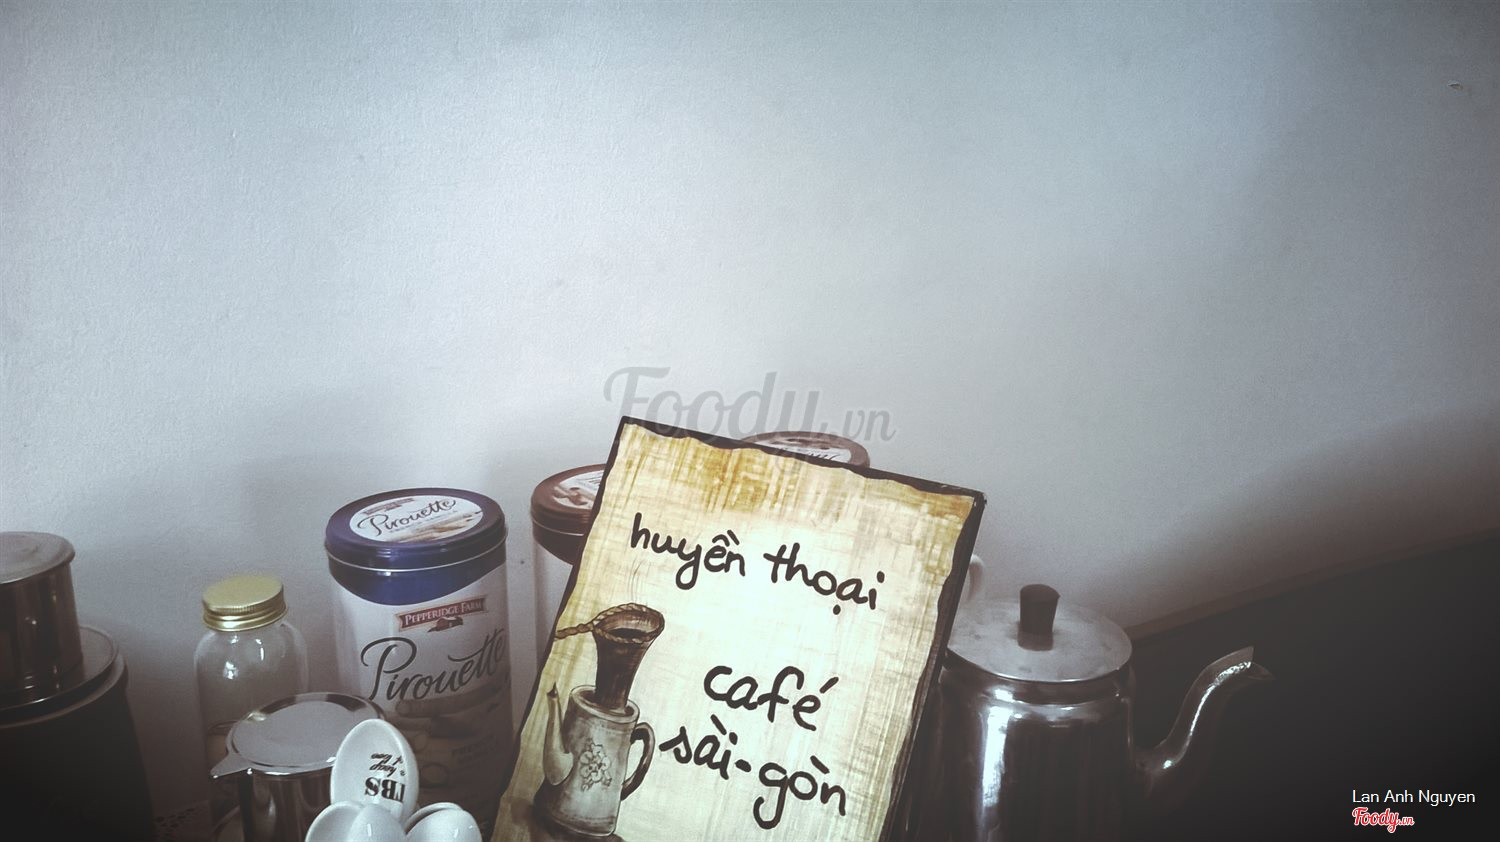 Foody.vn
huyền thoại
café
sài-gòn
Pirouette
PEPPERIDGE FARM
Pirouette
TBS
Lan Anh Nguyen
Foody.vn